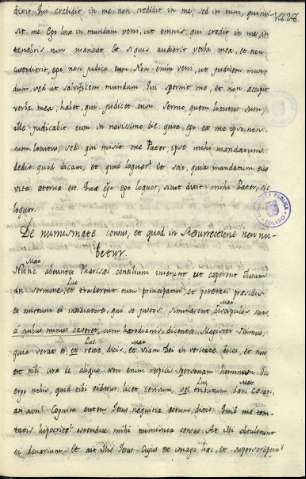 dixit Qui credit in me, non credit in me, sed in eum, qui mi
sit me. Ego lux in mundum veni, ut omnis, qui credit in me, in
tenebris non maneat. Et si quis audierit verba mea, et non
custodierit, ego non judico eum. Non enim veni, ut judicem mun
dum, sed ut salvificem mundum. Qui spernit me, et non accipit
verba mea, habet, qui judicet eum. Sermo, quem locutus sum,
ille judicabit eum in novissimo die. quia ego ex me ipso non
sum locutus, sed qui misit me Pater ipse mihi mandatum
dedit quid dicam, et quid loquar. et scio, quia mandatum eius
vita æterna est. Quæ ego loquor, sicut dixit mihi Pater, sic
loquor.
De numismate census, et quod in resurrectione non nu-
betur.
Mat
Tunc abeuntes Pharisæi consilium inierunt ut caperent
in sermone, et traderent eum principatui, et potestati præsidis
et mittunt ei
cum herodianis, dicentes, Magister scimus,
quia verax es, et recte dicis, et viam Dei in veritate doces, et non
est tibi cura de aliquo. non enim respicis personam hominum. Dic
ergo nobis, quid tibi videtur, licet censum, dari Cæsari,
an non? Cognita autem Jesus nequitia eorum, dixit. Quid me ten-
tatis hypocritæ? ostendite mihi numisma census. At illi obtulerunt
ei denarium. Et ait illis Jesus. Cujus est imago hæc, et superscriptio?